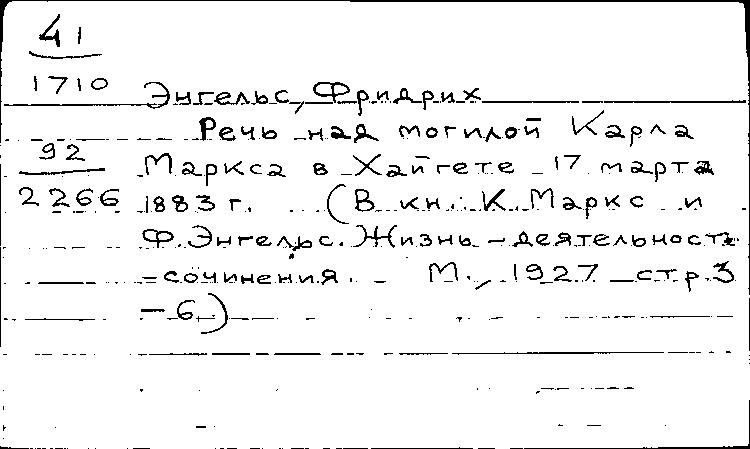 41
1710
Энгельс, Фридрих
Речь над могилой Карла
92
Маркса в Хайгете 17 марта
2266
1883 г. (В кн.: К. Маркс и
Ф. Энгельс. Жизнь – деятельность
– сочинения. – М., 1927 стр. 3
– 6)